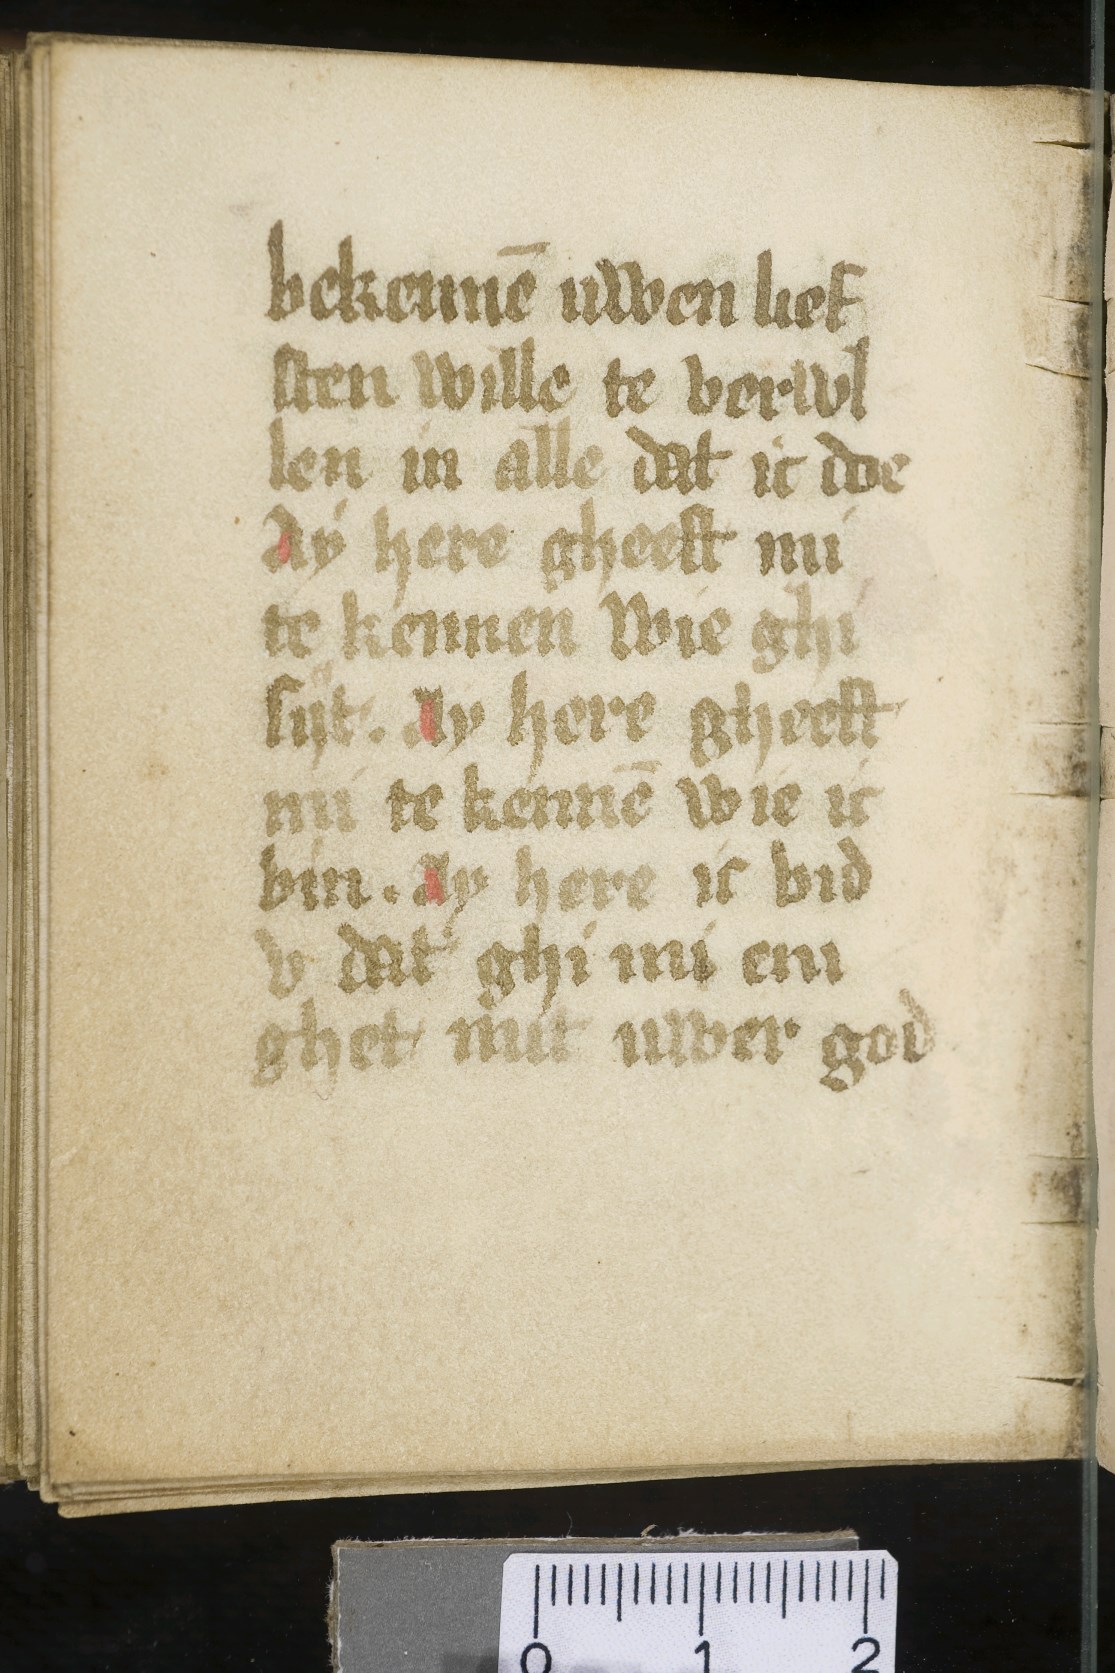 bekennē uwen lief
sten wille te vervvl
len in alle dat ic doe
Ay here gheeft mi
te kennen wie ghi
sijt. Ay here gheeft
mi te kennē wie ic
bin. Ay here ic bid
v dat ghi mi eni
ghet mit uwer god
0 1 2